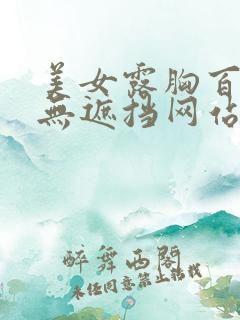 美女露胸百
無遮挡网站
醉舞西阁
未经同意禁止转载